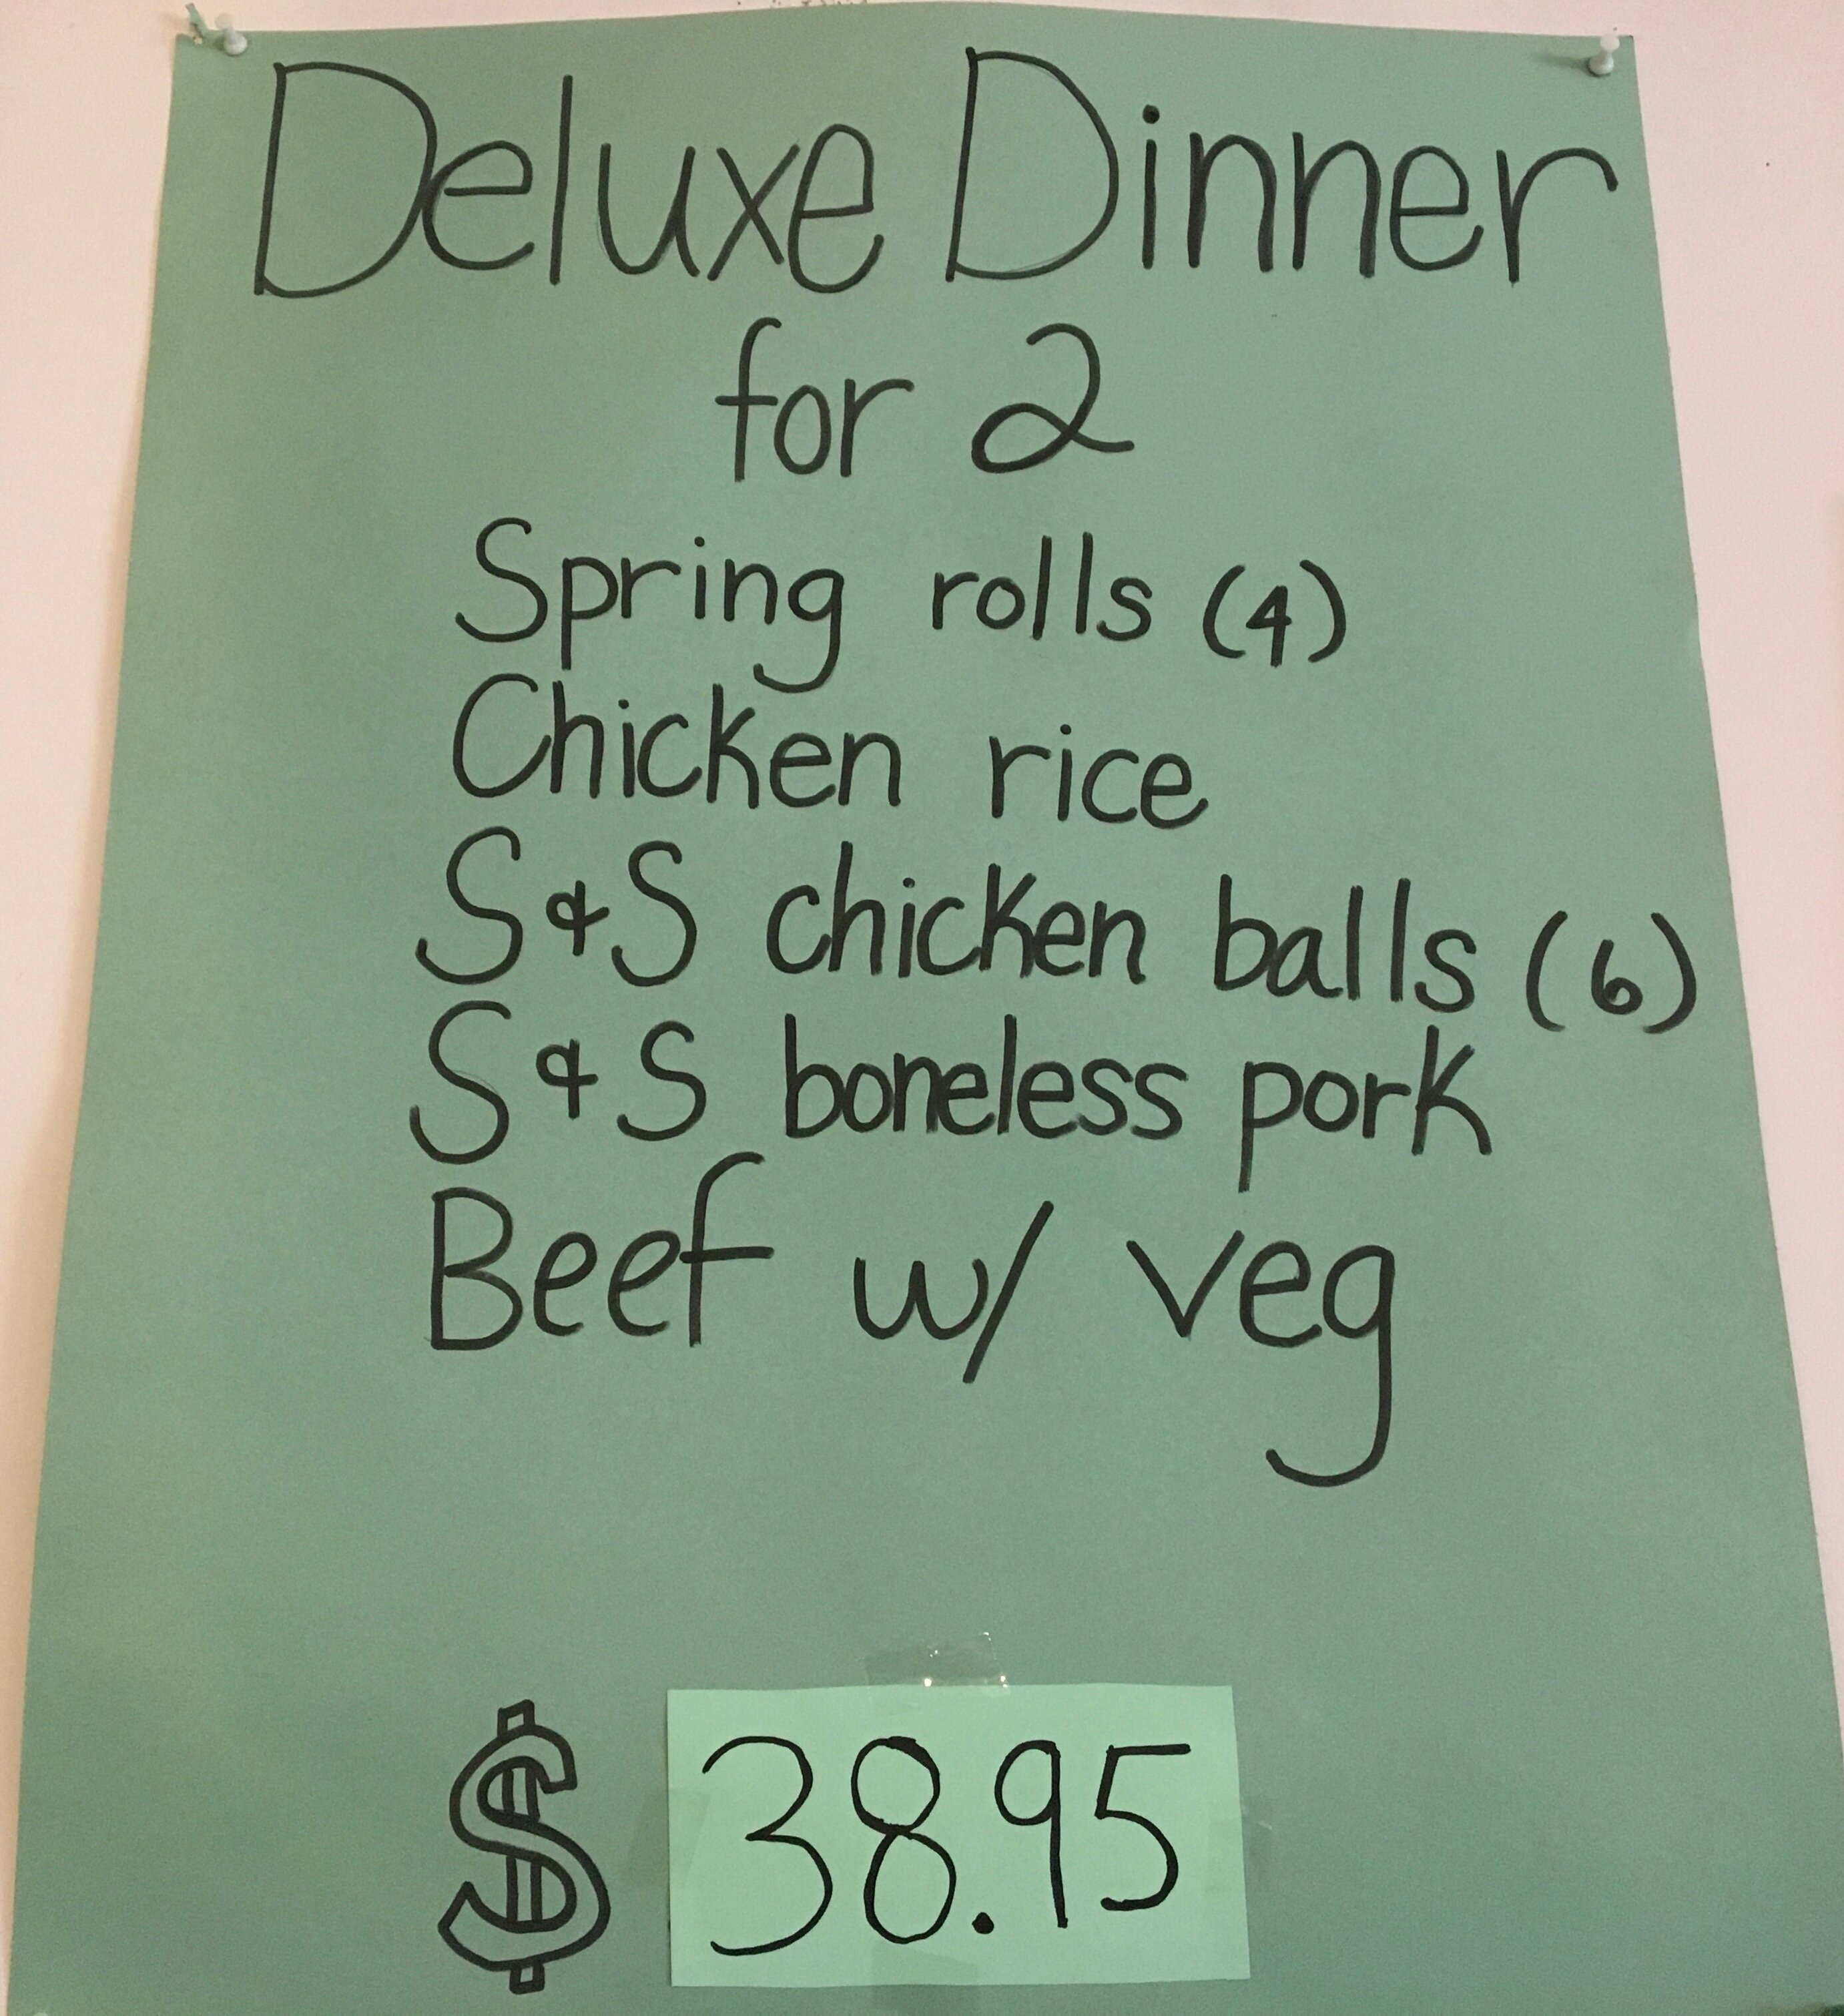 Deluxe Dinner
for 2
Spring rolls (4)
Chicken rice
S & S chicken balls (6)
S & S boneless pork
Beef w/ veg
$ 38.95